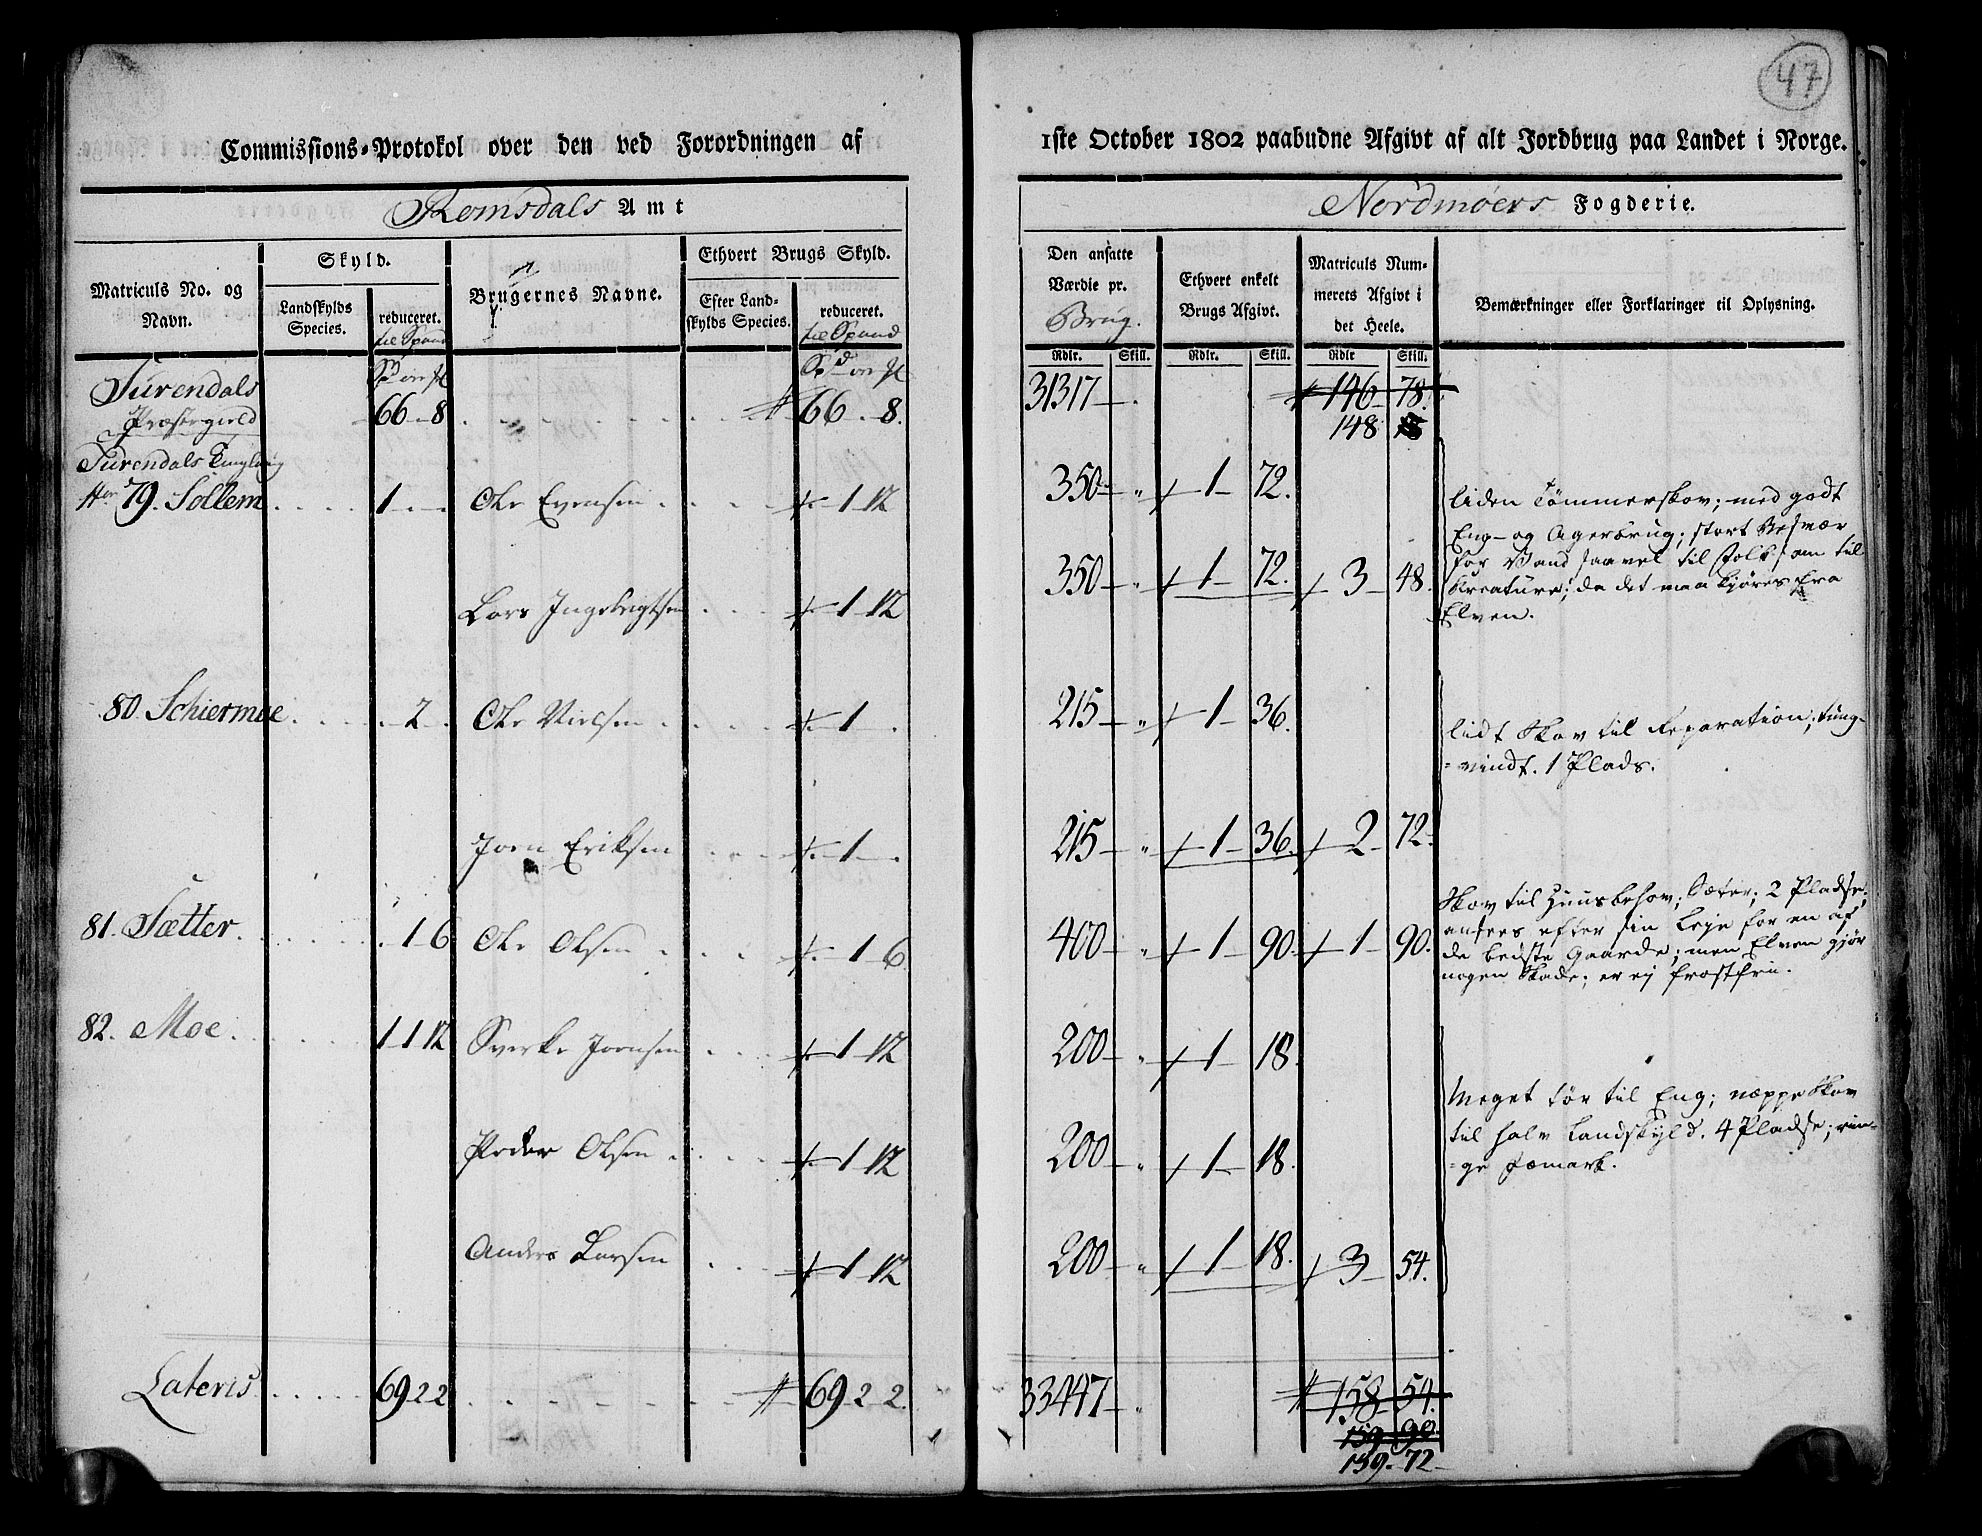 47
Commissions-Protokol over den ved Forordningen af
1ste October 1802 paabudne Afgivt af alt Jordbrug paa Landet i Norge.
Romsdals Amt
Nordmøers Fogderie.
Matriculs No. og Navn.
Skyld.
Landskylds Species.
reduceret. til Spand
Brugernes Navne.
Ethvert Brugs Skyld.
Efter Landskylds Species.
reduceret. til Spand
Den ansatte Værdie pr. Brug.
Ethvert enkelt Brugs Afgivt.
Matriculs Nummerets Afgivt i det Heele.
Bemærkninger eller Forklaringer til Oplysning.
Rdlr. Skill. Rdlr. Skill. Rdlr Skill.
Surendals
Præstegield 66 - 8 66 - 8. 31317 - 146 - 78.
148
Surendals
79. Sollem 1 - Ole Evensen 1 12 350 - 1 - 72.
Lars Ingebrigtsen 1 12 350 - 1 - 72. 3 - 48.
liden Tømmerskov; med godt
Eng- og Agerbrug; stort Besvær
for Vand saavel til Folk som til
Kreature; da det maa kjøres fra
Elven.
80 Schiermoe 2 Ole Nielsen 1 - 215 - 1 - 36.
Joen Eriksen 1 - 215 - 1 - 36. 2 - 72.
lidt Skov til Reparation; tung-
=vindt. 1 Plads.
81. Sætter 1 6 Ole Olsen 1 6 400 - 1 - 90. 1 - 90.
Skov til Huusbehov; Sæter; 2 Pladse;
ansees efter sin Leje for en af
de bedste Gaarde; men Elven gjør
nogen Skade; er ej frostfrie.
82. Moe 1 1 12 Sverke Joensen 1 12 200 - 1 - 18.
Peder Olsen 1 12 200 - 1 - 18.
Anders Larsen 1 12 200 - 1 - 18. 3 - 54.
Meget tør til Eng; næppe Skov
til halv Landskyld. 4 Pladse; rin-
=ge Fæmark.
Lateris 69 2 2 69 - 2 - 2. 33447 - 158 - 54.
159 90.
159. 72 -